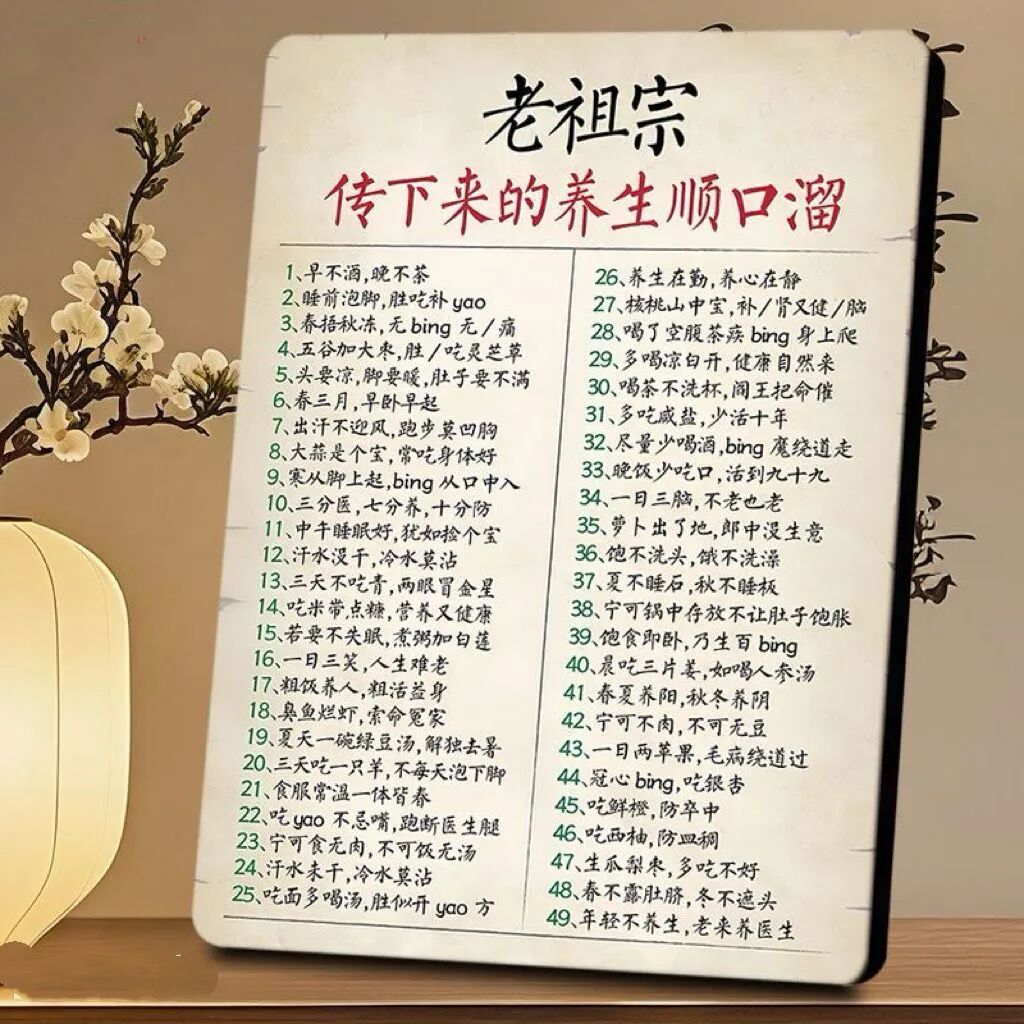 老祖宗
传下来的养生顺口溜
1、早不酒,晚不茶
2、睡前泡脚,胜吃补yao
3、春捂秋冻,无bing无/痛
4、五谷加大枣,胜/吃灵芝草
5、头要凉,脚要暖,肚子要不满
6、春三月,早卧早起
7、出汗不迎风,跑步莫凹胸
8、大蒜是个宝,常吃身体好
9、寒从脚上起,bing从口中入
10、三分医,七分养,十分防
11、中午睡眠好,犹如捡个宝
12、汗水没干,冷水莫沾
13、三天不吃青,两眼冒金星
14、吃米带点糠,营养又健康
15、若要不失眠,煮粥加白莲
16、一日三笑,人生难老
17、粗饭养人,粗活益身
18、臭鱼烂虾,索命冤家
19、夏天一碗绿豆汤,解独去暑
20、三天吃一只羊,不每天泡下脚
21、食服常温一体皆春
22、吃yao不忌嘴,跑断医生腿
23、宁可食无肉,不可饭无汤
24、汗水未干,冷水莫沾
25、吃面多喝汤,胜似开yao方
26、养生在勤,养心在静
27、核桃山中宝,补/肾又健/脑
28、喝了空腹茶疾bing身上爬
29、多喝凉白开,健康自然来
30、喝茶不洗杯,阎王把命催
31、多吃咸盐,少活十年
32、尽量少喝酒,bing魔绕道走
33、晚饭少吃口,活到九十九
34、一日三脑,不老也老
35、萝卜出了地,郎中没生意
36、饱不洗头,饿不洗澡
37、夏不睡石,秋不睡板
38、宁可锅中存放不让肚子饱胀
39、饱食即卧,乃生百bing
40、晨吃三片姜,如喝人参汤
41、春夏养阳,秋冬养阴
42、宁可不肉,不可无豆
43、一日两苹果,毛病绕道过
44、冠心bing,吃银杏
45、吃鲜橙,防卒中
46、吃西柚,防血稠
47、生瓜梨枣,多吃不好
48、春不露肚脐,冬不遮头
49、年轻不养生,老来养医生